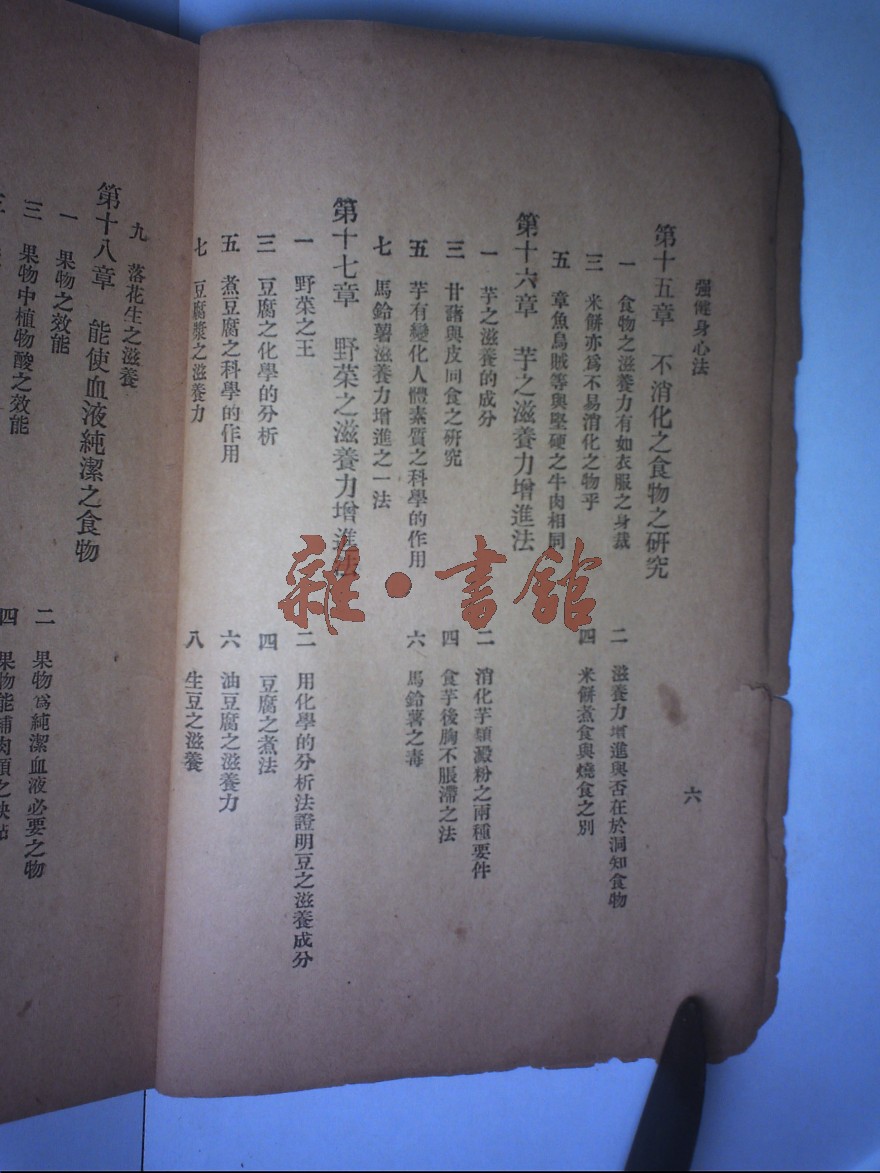 强健身心法
六
第十五章 不消化之食物之研究
一 食物之滋養力有如衣服之身裁
二 滋養力增進與否在於洞知食物
三 米餅亦爲不易消化之物乎
四 米餅煮食與燒食之別
五 章魚烏賊等與堅硬之牛肉相同
第十六章 芋之滋養力增進法
一 芋之滋養的成分
二 消化芋類澱粉之兩種要件
三 甘藷與皮同食之研究
四 食芋後胸不脹滯之法
五 芋有變化人體素質之科學的作用
六 馬鈴薯之毒
七 馬鈴薯滋養力增進之一法
第十七章 野菜之滋養力增進法
一 野菜之王
二 用化學的分析法證明豆之滋養成分
三 豆腐之化學的分析
四 豆腐之煮法
五 煮豆腐之科學的作用
六 油豆腐之滋養力
七 豆腐漿之滋養力
八 生豆之滋養
九 落花生之滋養
第十八章 能使血液純潔之食物
一 果物之效能
二 果物爲純潔血液必要之物
三 果物中植物酸之效能
四 果物能補肉類之缺點
雜·書館